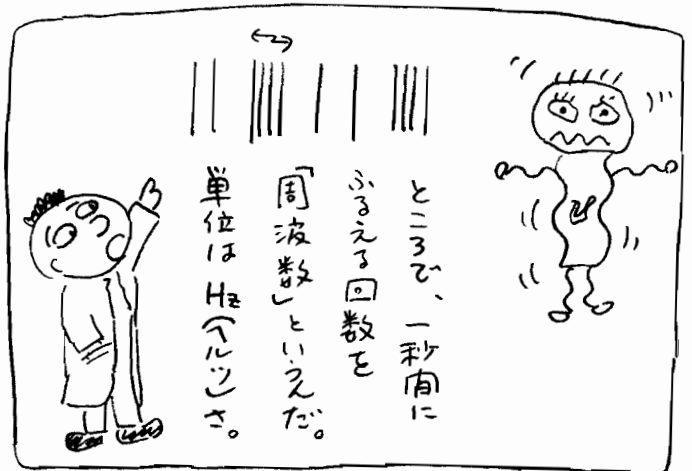 ところで、一秒間に
ふるえる回数を
「周波数」というんだ。
単位はHz(ヘルツ)さ。